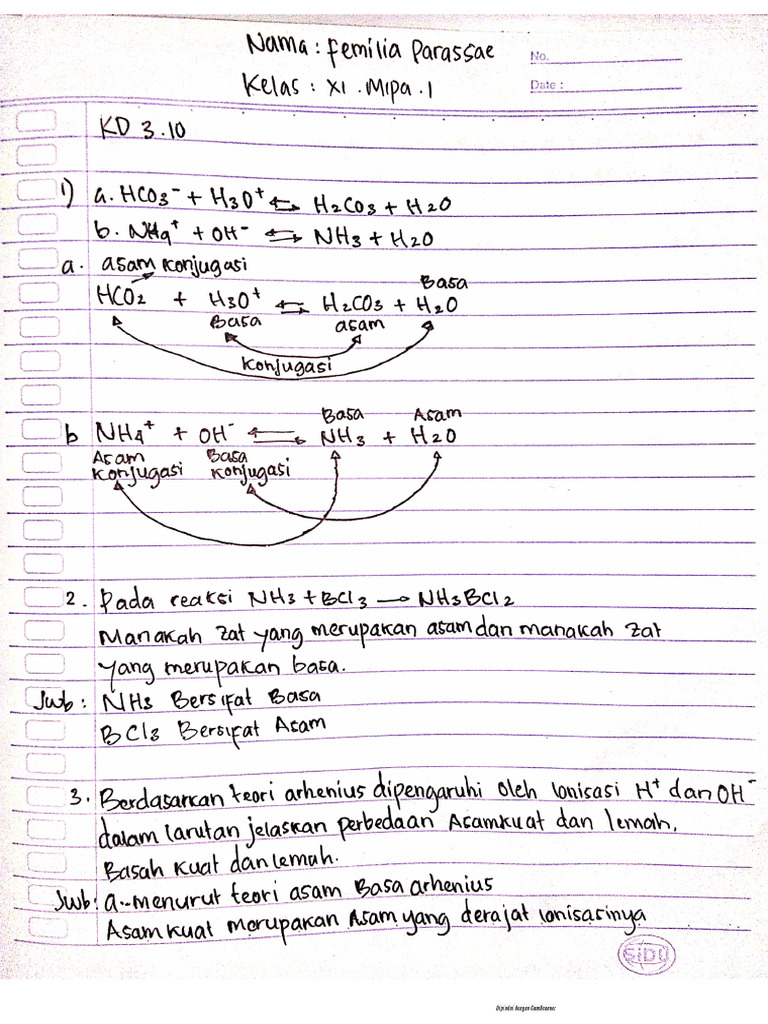 Nama : Femilia Parassae
No.
Kelas : XI . Mipa . 1
Date :
KD 3.10
1) a. HCO3⁻ + H3O⁺ ⇆ H2CO3 + H2O
b. NH4⁺ + OH⁻ ⇆ NH3 + H2O
a. asam konjugasi
Basa
HCO2 + H3O⁺ ⇆ H2CO3 + H2O
Basa asam
Konjugasi
Basa Asam
b NH4⁺ + OH⁻ ⇆ NH3 + H2O
Asam Basa
Konjugasi Konjugasi
2. Pada reaksi NH3 + BCl3 → NH3BCl2
Manakah zat yang merupakan asam dan manakah zat
yang merupakan basa.
Jwb : NH3 Bersifat Basa
BCl3 Bersifat Asam
3. Berdasarkan teori arhenius dipengaruhi oleh Ionisasi H⁺ dan OH⁻
dalam larutan jelaskan perbedaan Asam kuat dan lemah,
Basah kuat dan lemah.
Jwb : a - menurut teori asam Basa arhenius
Asam kuat merupakan Asam yang derajat Ionisasinya
SIDU
Dipindai dengan CamScanner